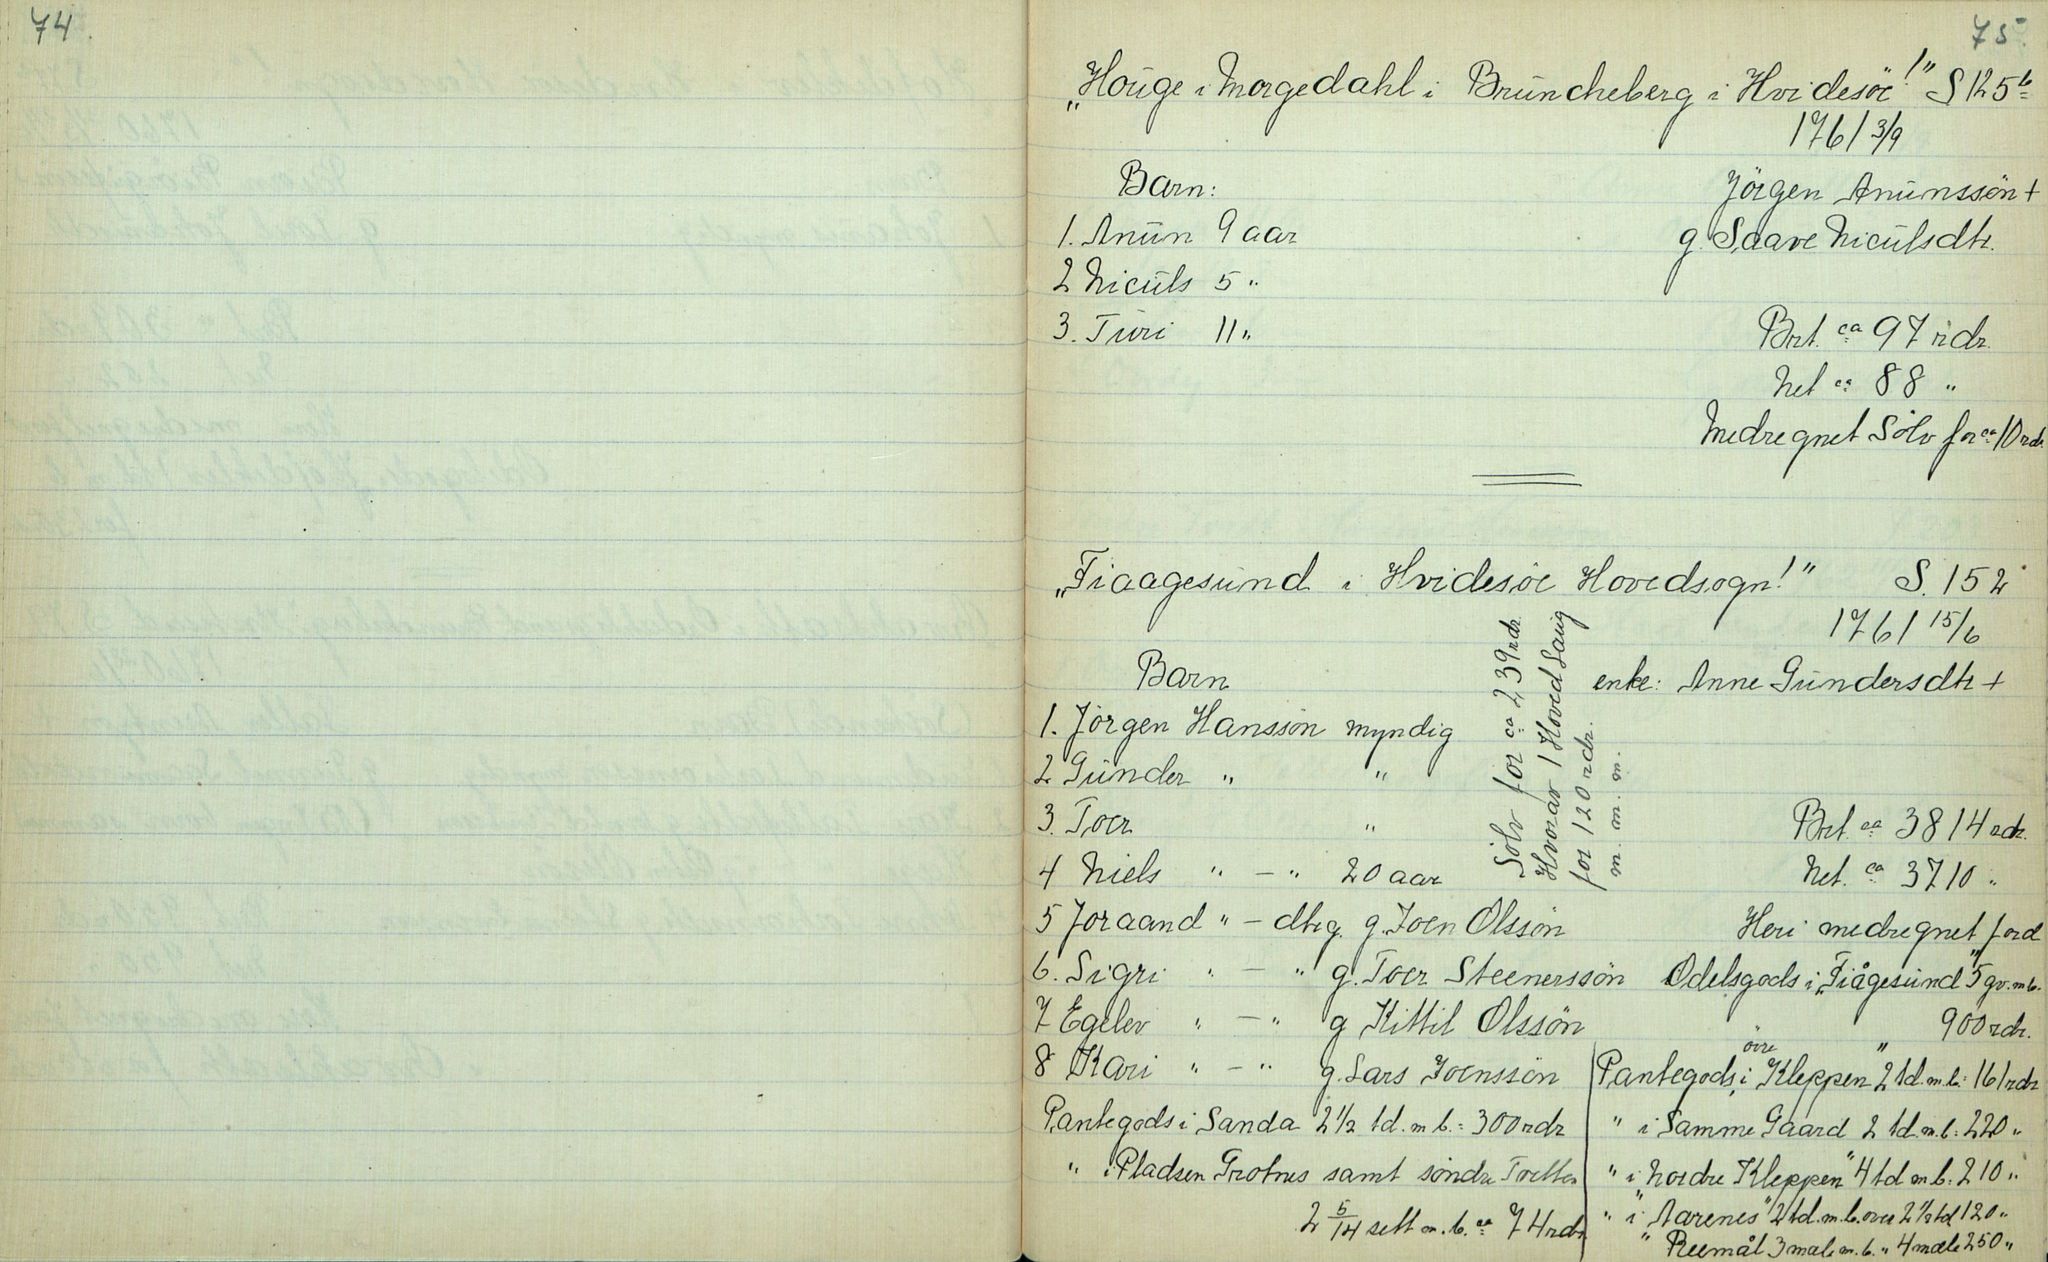 74.
75.
„Houge i Morgedahl i Brüncheberg i Hvidesöe!" S 125b
1761 3/9
Barn: Jörgen Anünssön +
1. Anün 9 aar g. Saave Nicülsdtr.
2 Nicüls 5 "
3. Türi 11 " Brt. ca 97 rdr.
Net ca 88 "
Medregnet Sölv for ca 10 rdr
„Fiaagesünd i Hvidesöe Hovedsogn!" S. 152
1761 15/6
Barn enke: Anne Gündersdtr +
1. Jörgen Hanssön myndig
2 Günder " "
3. Toer " Brt. ca 3814 rdr.
4 Niels " — " 20 aar Net. ca 3710 "
Sölv for ca 239 rdr.
Hvorav 1 Hoved Saug
for 120 rdr.
m. m. m.
5 Joraand " — dtr. g. Joen Olssön Heri medregnet jord
6. Sigri " — " g. Toer Steenerssön Odelsgods i „Fiågesünd" 5 gv. m b.
7 Egelev " — " g Kittil Olssön 900 rdr.
8 Kari " — " g. Lars Joenssön
Pantegods i Sanda 2 1/2 td. m b. = 300 rdr
" i Pladsen Grotnes samt söndre Tvetten
2 5/14 sett m. b. ca 74 rdr.
Pantegods i övre Kleppen" 2 td. m. b. = 161 rdr
" i Samme Gaard 2 td. m. b. = 220 "
" i Nordre Kleppen" 4 td m b. = 210 "
" i „Aarenes" 2 td. m. b. over 2 1/2 td 120 "
" Reemål 3 male m. b. " 4 mæle 250 "